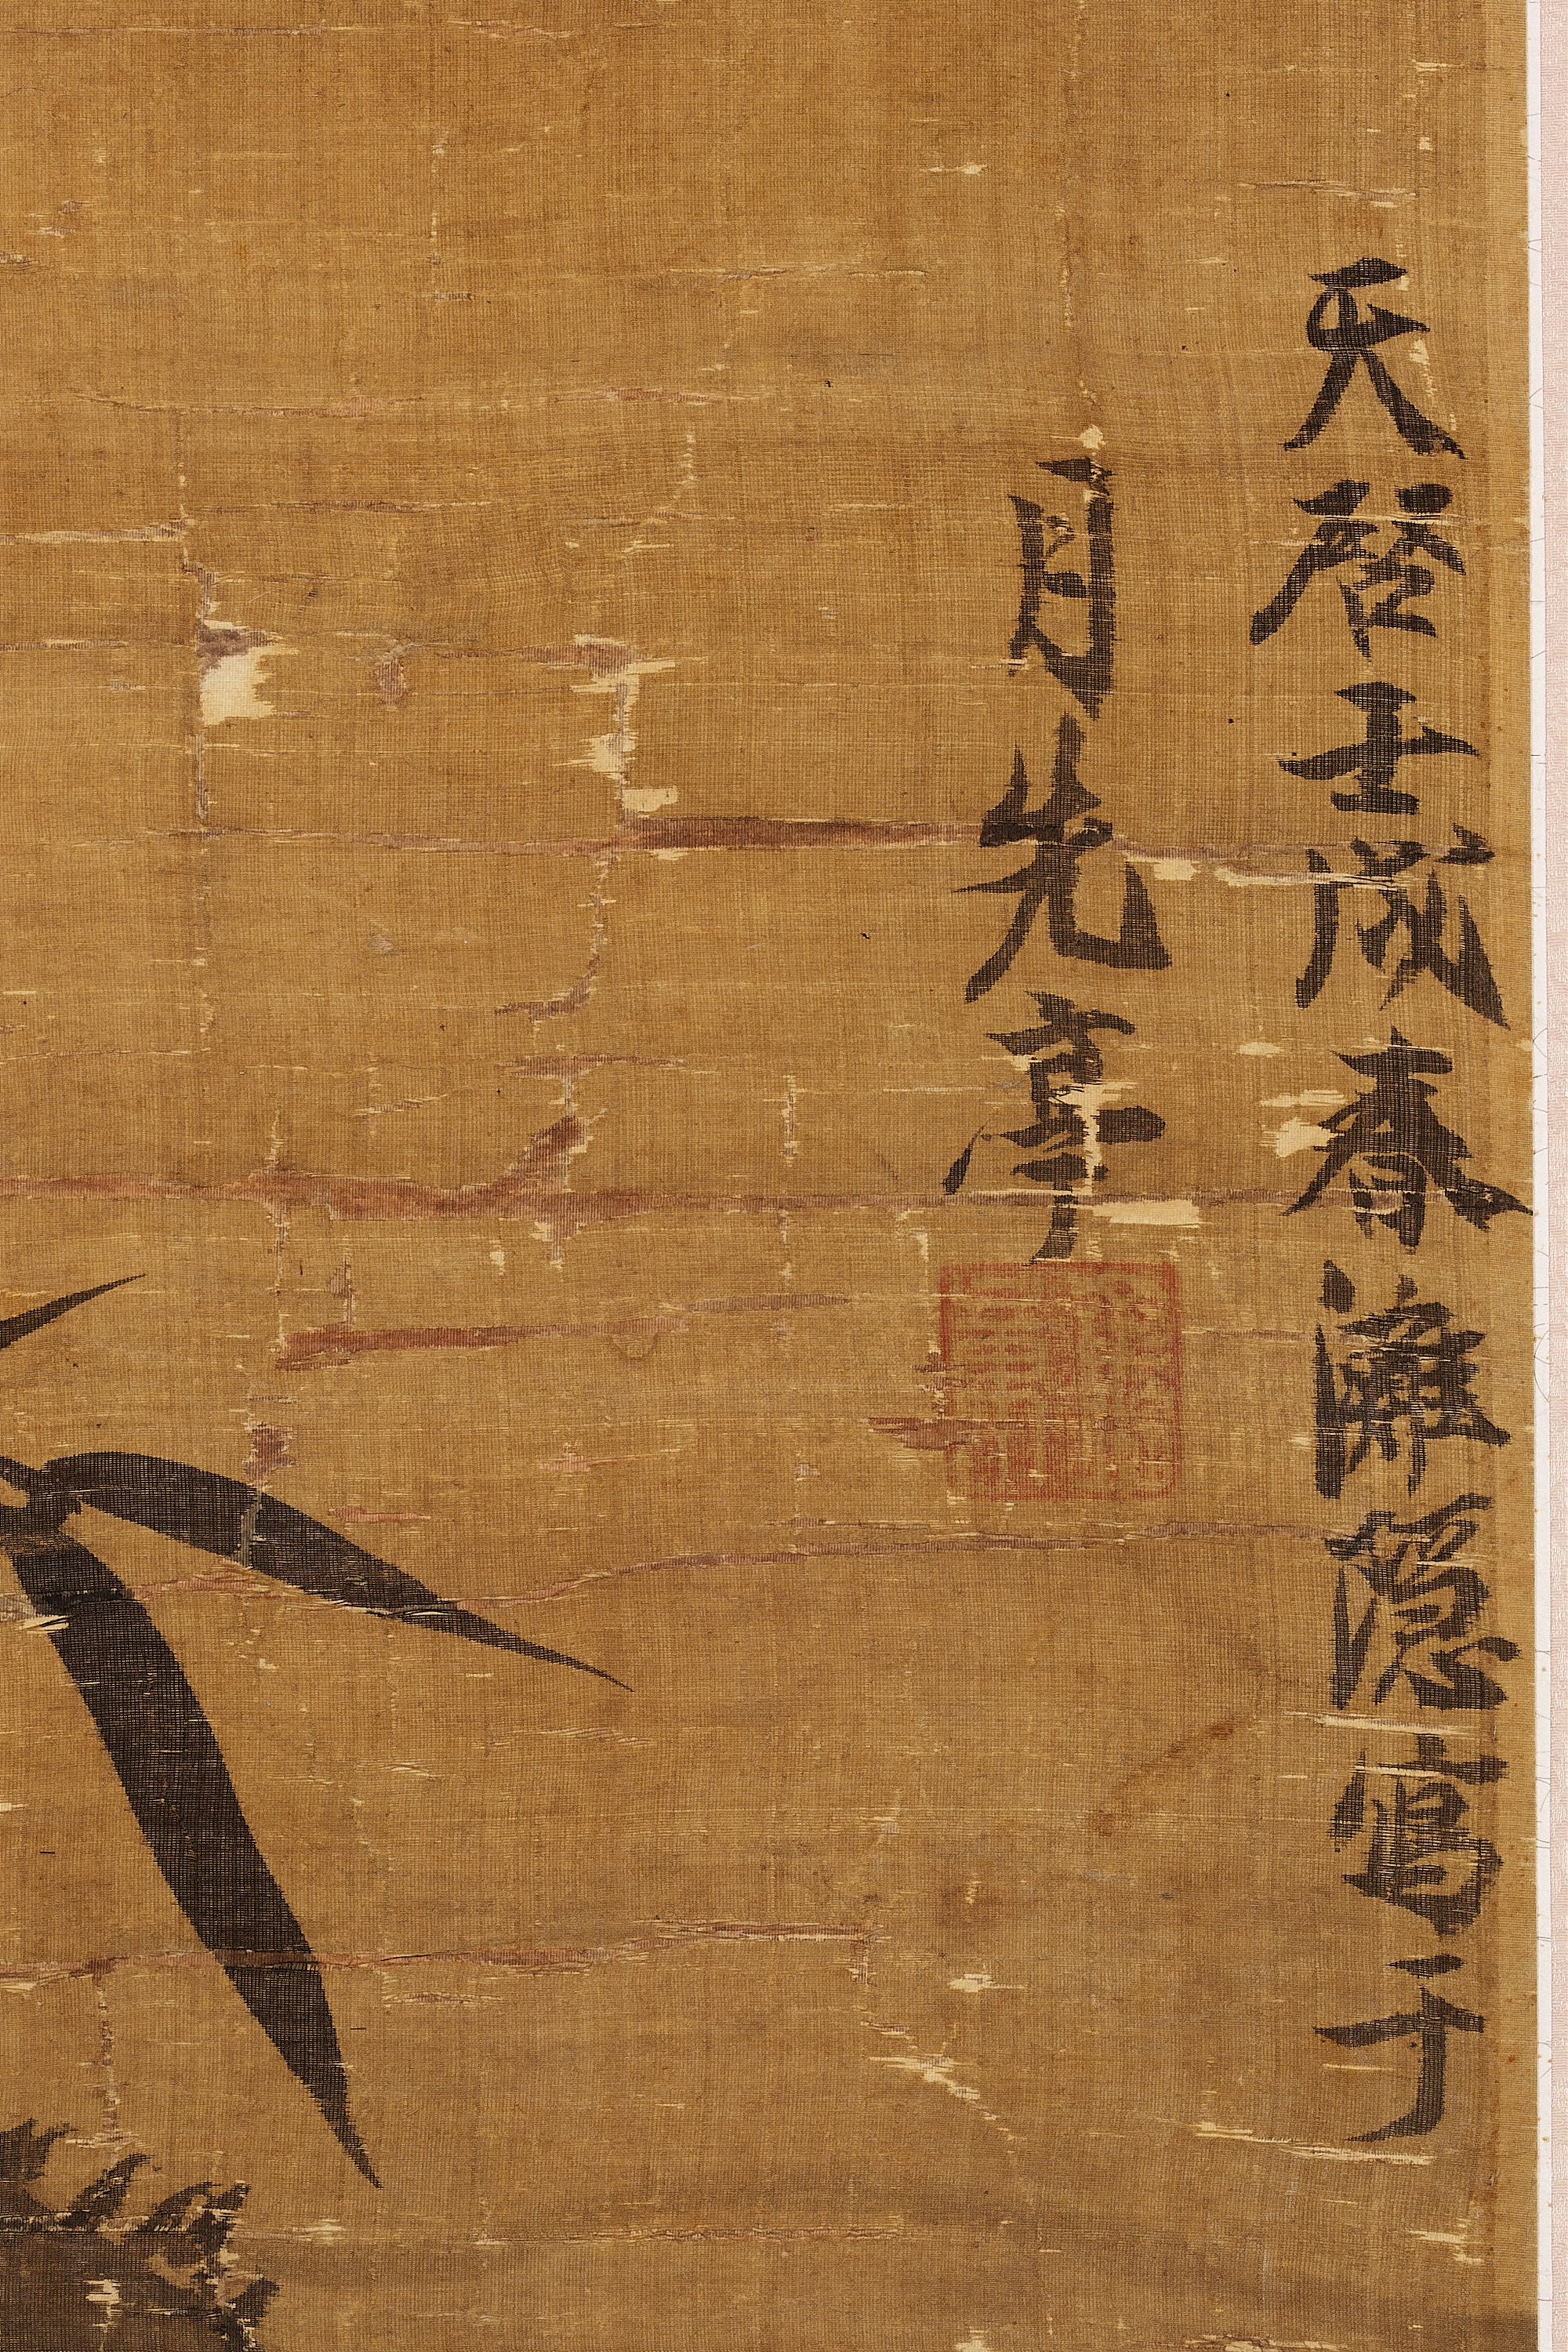 天啓壬戌春灘隱寫于
月先亭